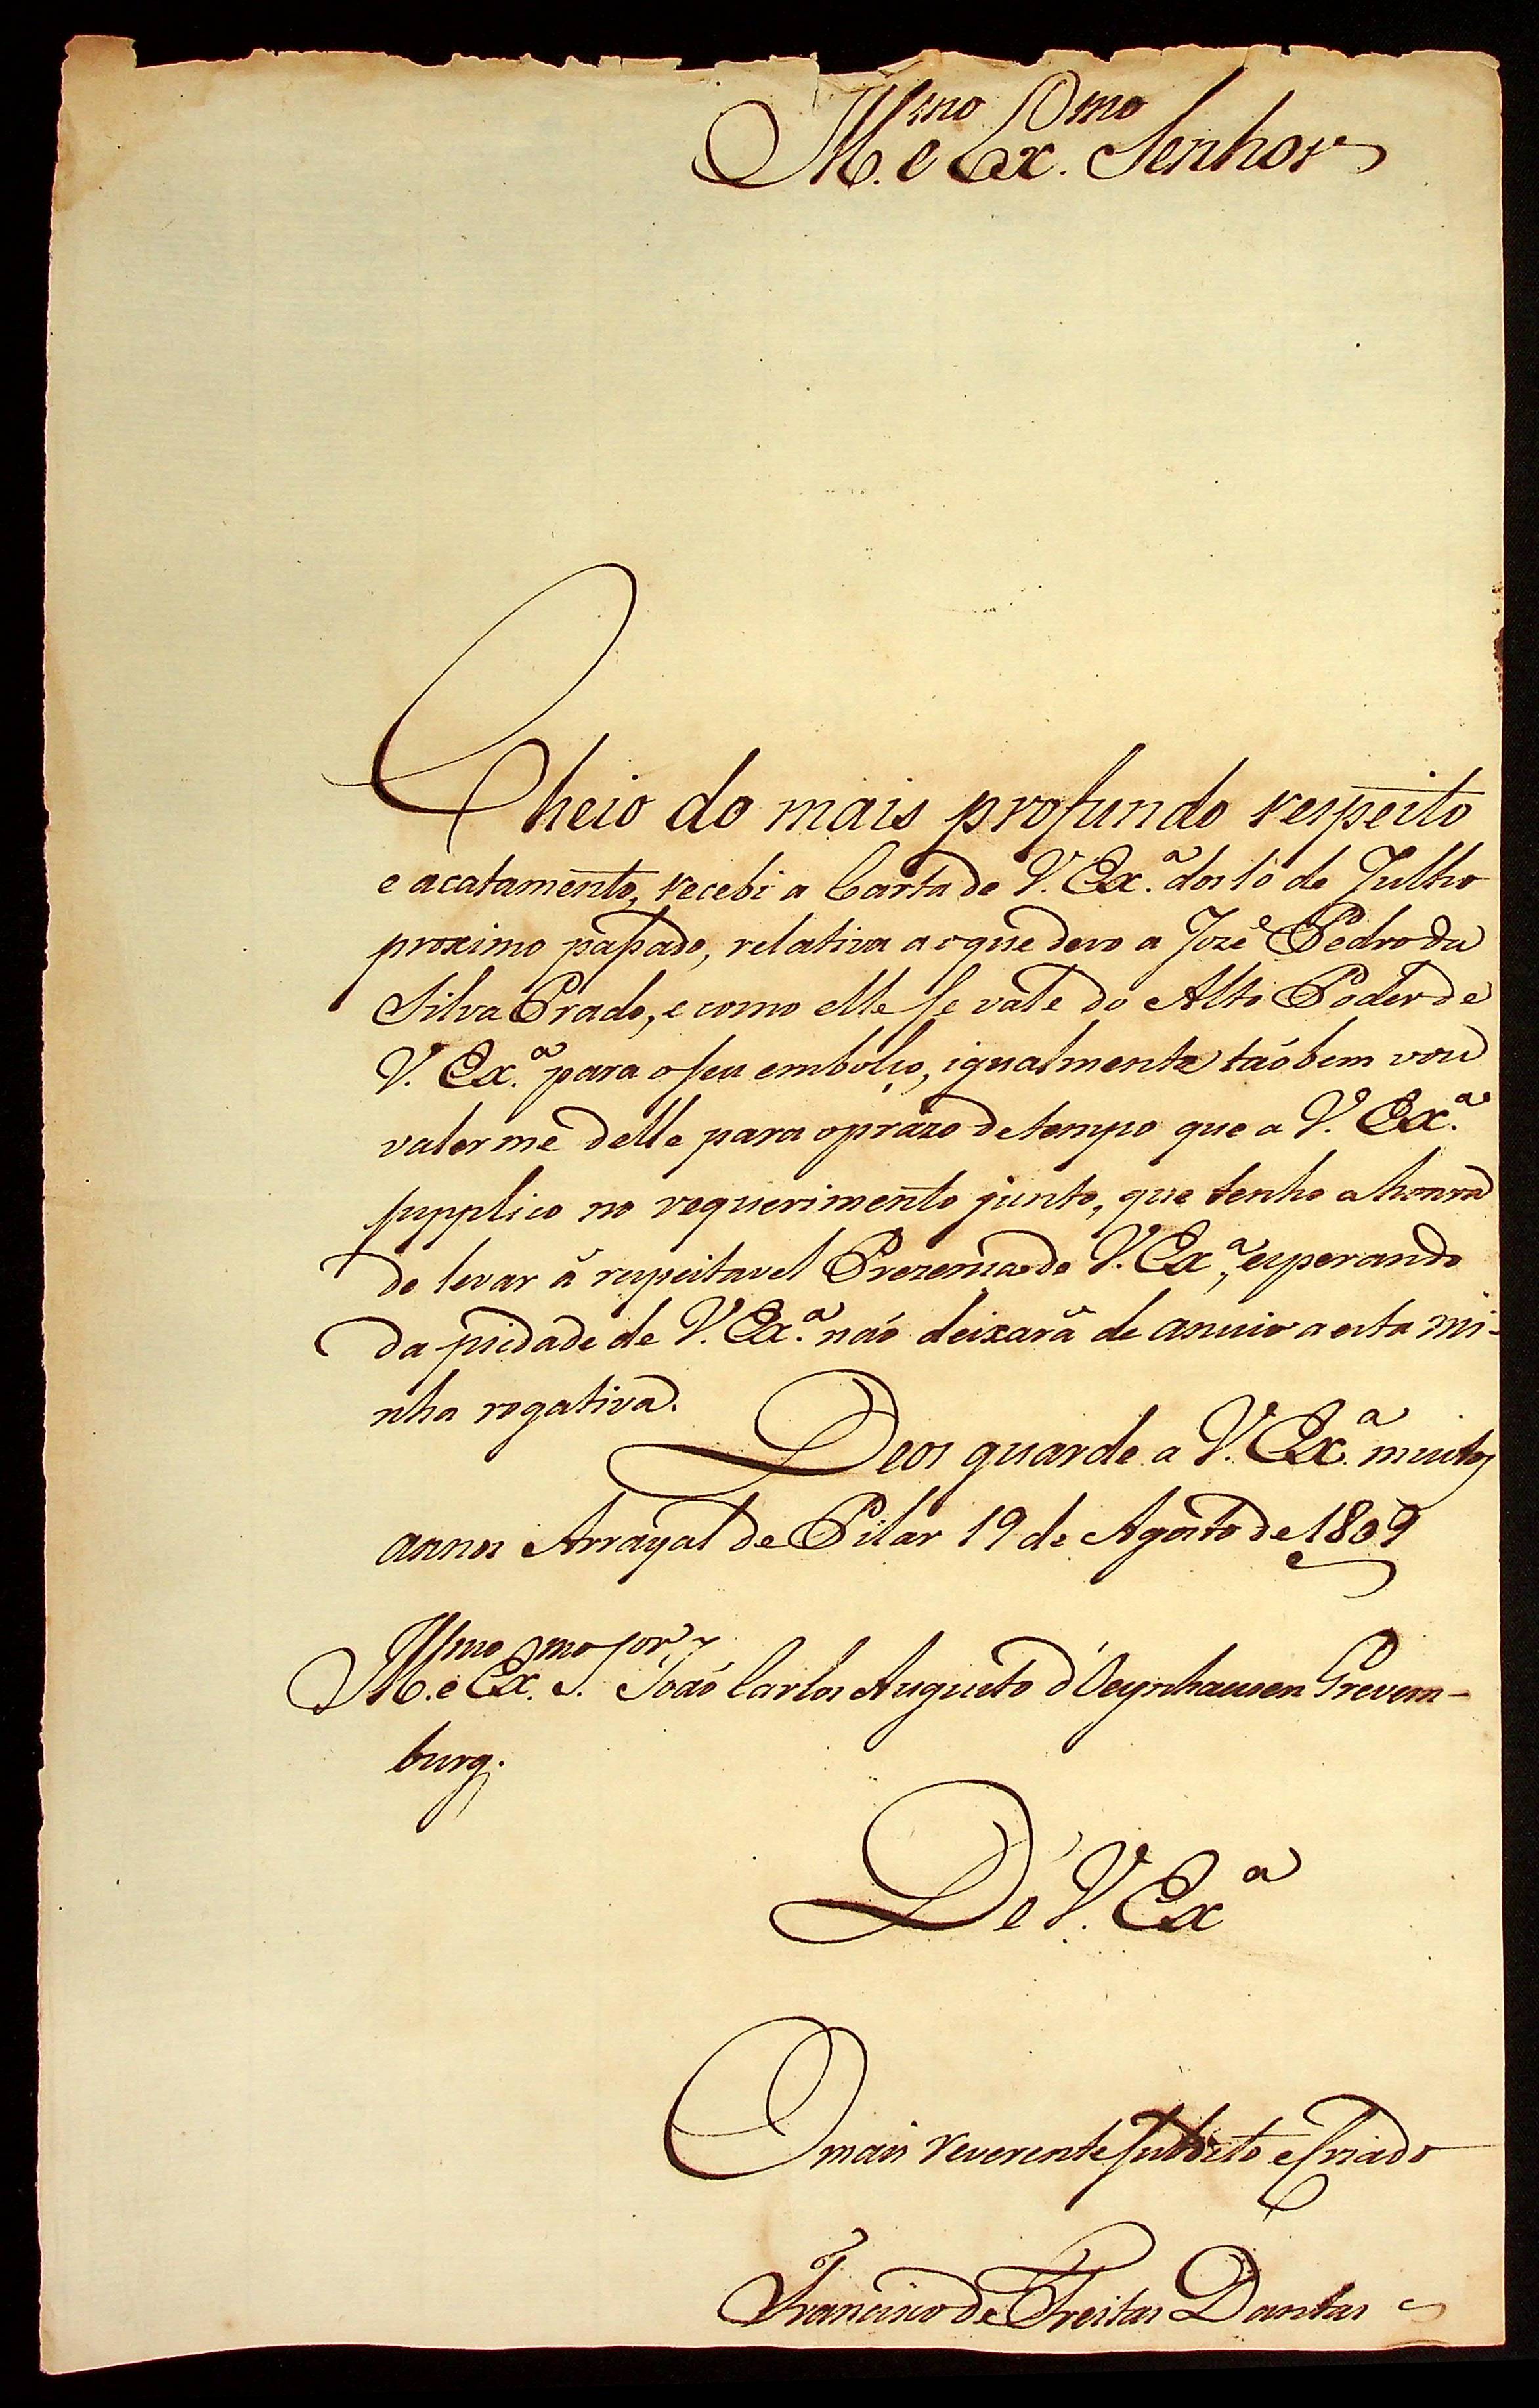 Ill.mo e Ex.mo Senhor
Cheio do mais profundo respeito
e acatamento, recebi a Carta de V. Ex.a dos 10 de Julho
proximo passado, relativa ao que devo a Jozè Pedro da
Silva Prado, e como elle se vale do Alto Poder de
V. Ex.a para o seu embolço, igualmente tãobem vou
valerme delle para o prazo de tempo que a V. Ex.a
supplico no requerimento junto, que tenho a honra
de levar á respeitavel Prezença de V. Ex.a, esperando
da piedade de V. Ex.a não deixará de anuir a esta mi-
nha rogativa.
Deos guarde a V. Ex.a muitos
annos Arrayal de Pilar 19 de Agosto de 1809
Ill.mo e Ex.mo S.or João Carlos Augusto d'Oeynhausen Grevem-
burg.
De V. Ex.a
O mais reverente subdito e Criado
Francisco de Freitas Dantas